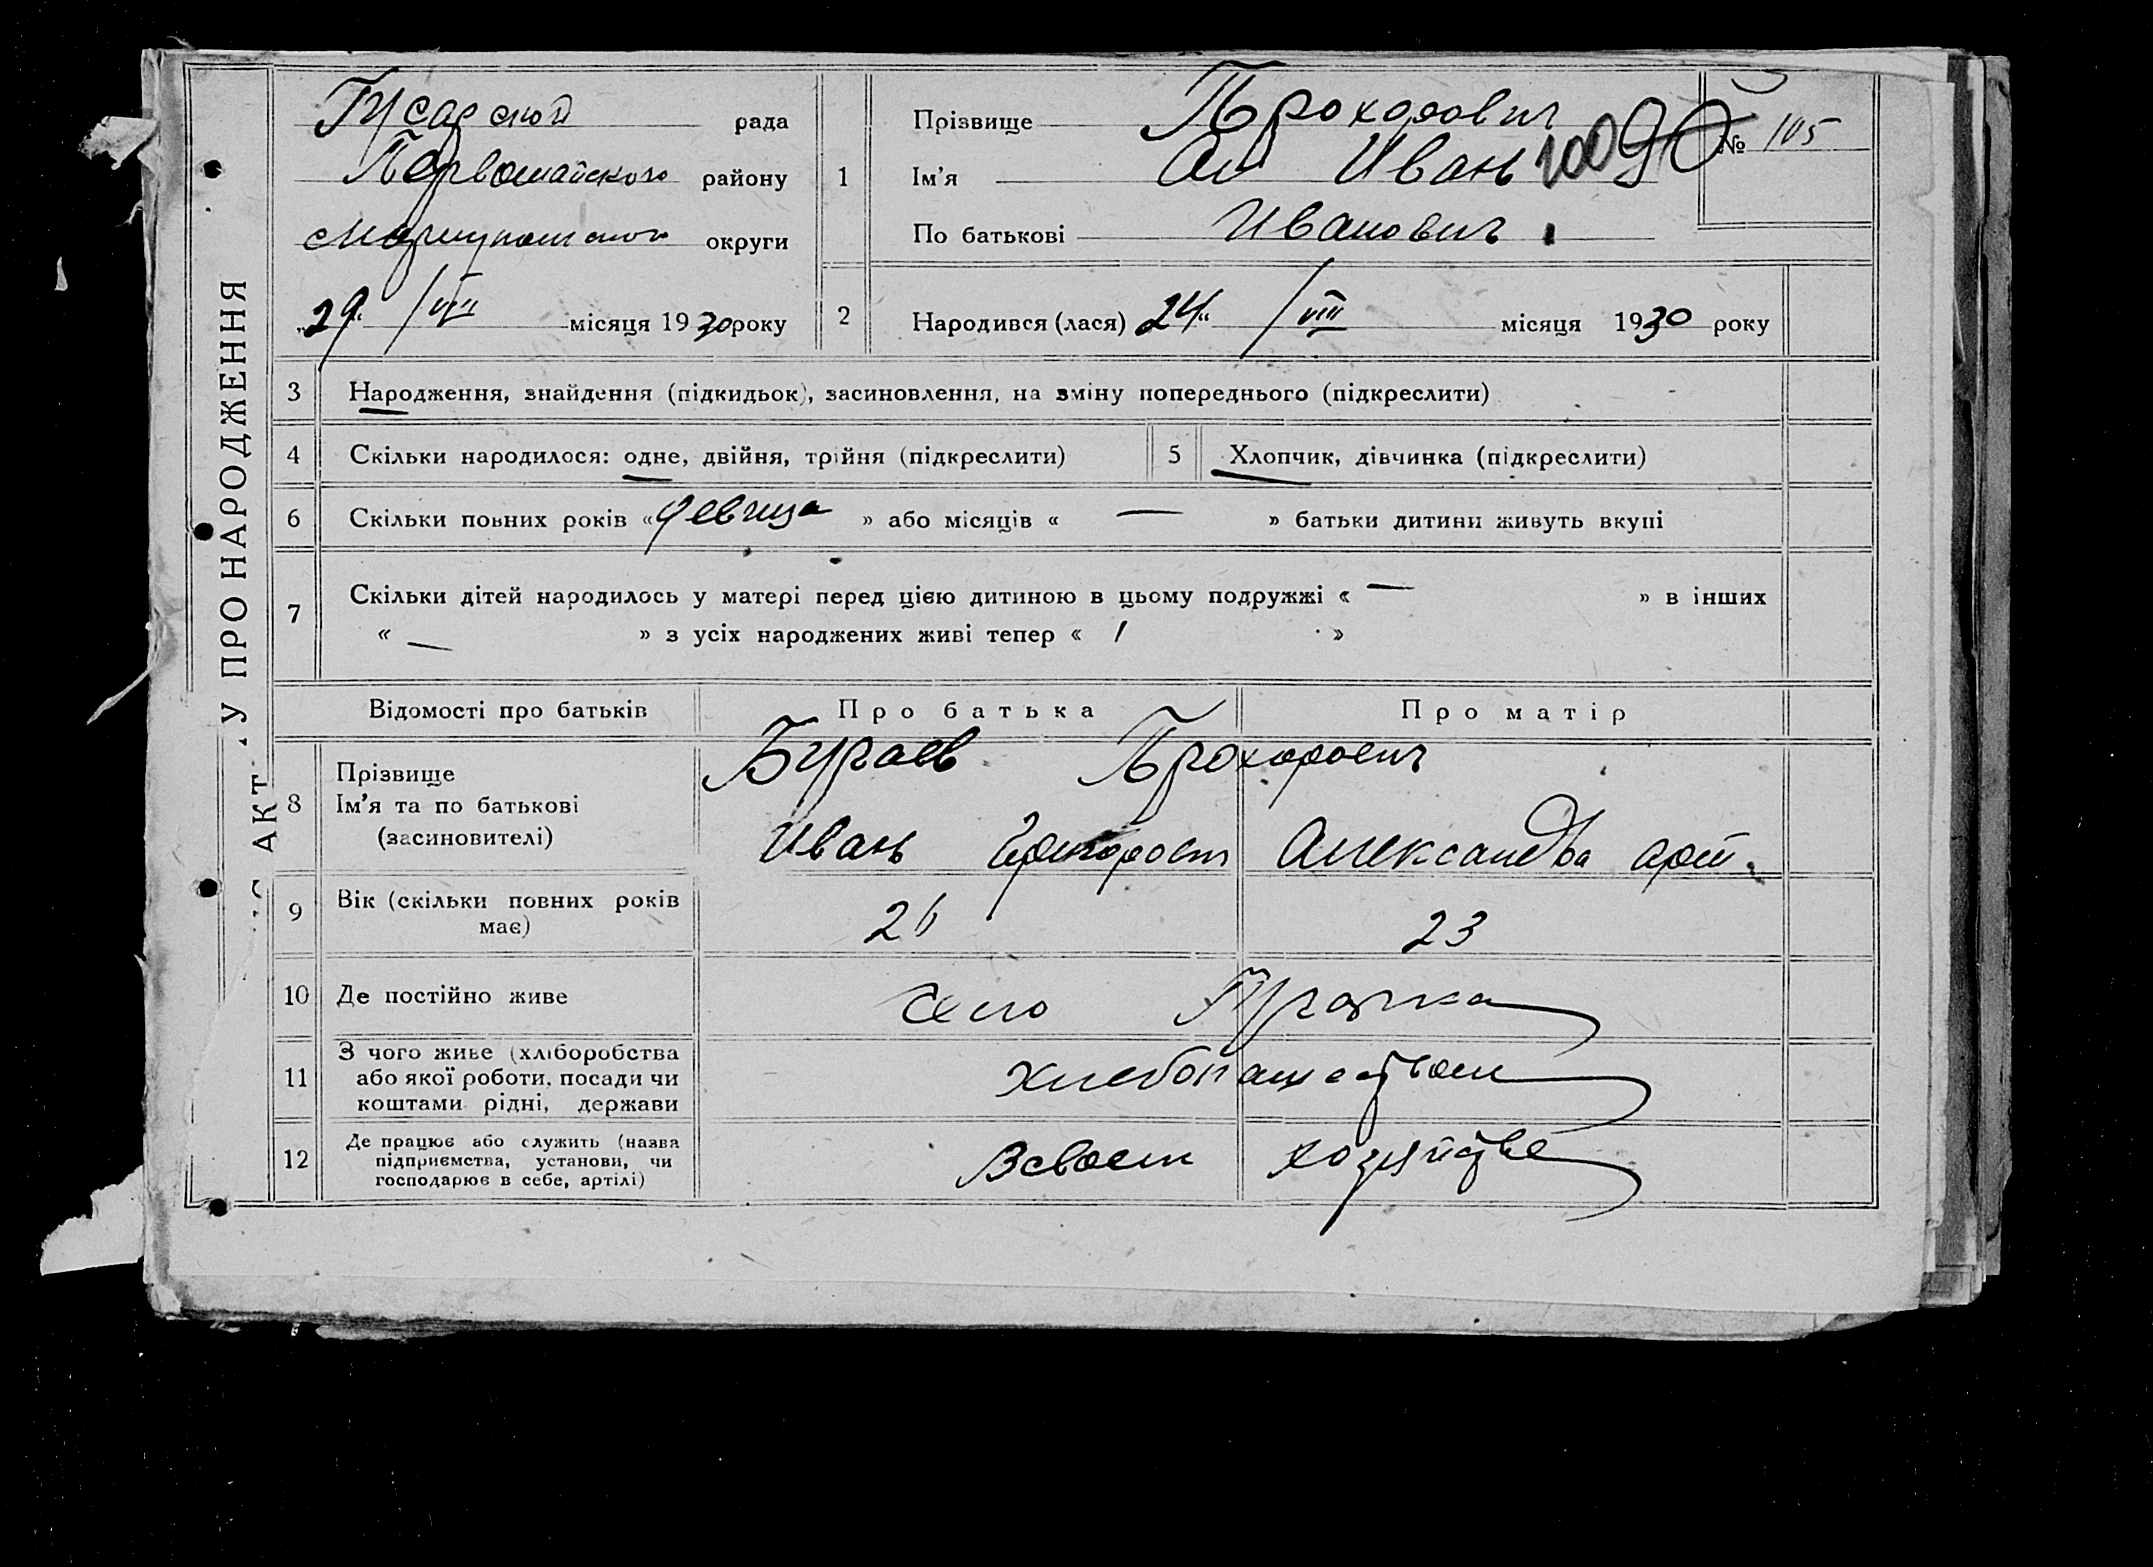 рада
Первомайского району
округи
„29“ /VIII місяця 1930 року
1
Прізвище Прохорович
Ім’я Иван
По батькові Иванович
10090
№ 105
2
Народився (лася) 24“ /VIII місяця 1930 року
АКТ У ПРО НАРОДЖЕННЯ
3 Народження, знайдення (підкидьок), засиновлення, на зміну попереднього (підкреслити)
4 Скільки народилося: одне, двійня, трійня (підкреслити)
5 Хлопчик, дівчинка (підкреслити)
6 Скільки повних років « девица » або місяців « — » батьки дитини живуть вкупі
7 Скільки дітей народилось у матері перед цією дитиною в цьому подружжі « — » в інших
« — » з усіх народжених живі тепер « 1 »
Відомості про батьків Про батька Про матір
8 Прізвище
Ім’я та по батькові
(засиновителі)
Бугаев Прохорович
Иван Александра
9 Вік (скільки повних років
має)
26 23
10 Де постійно живе село
11 З чого живе (хліборобства
або якої роботи, посади чи
коштами рідні, держави
хлебопашеством
12 Де працює або служить (назва
підприємства, установи, чи
господарює в себе, артілі)
В своем хозяйстве